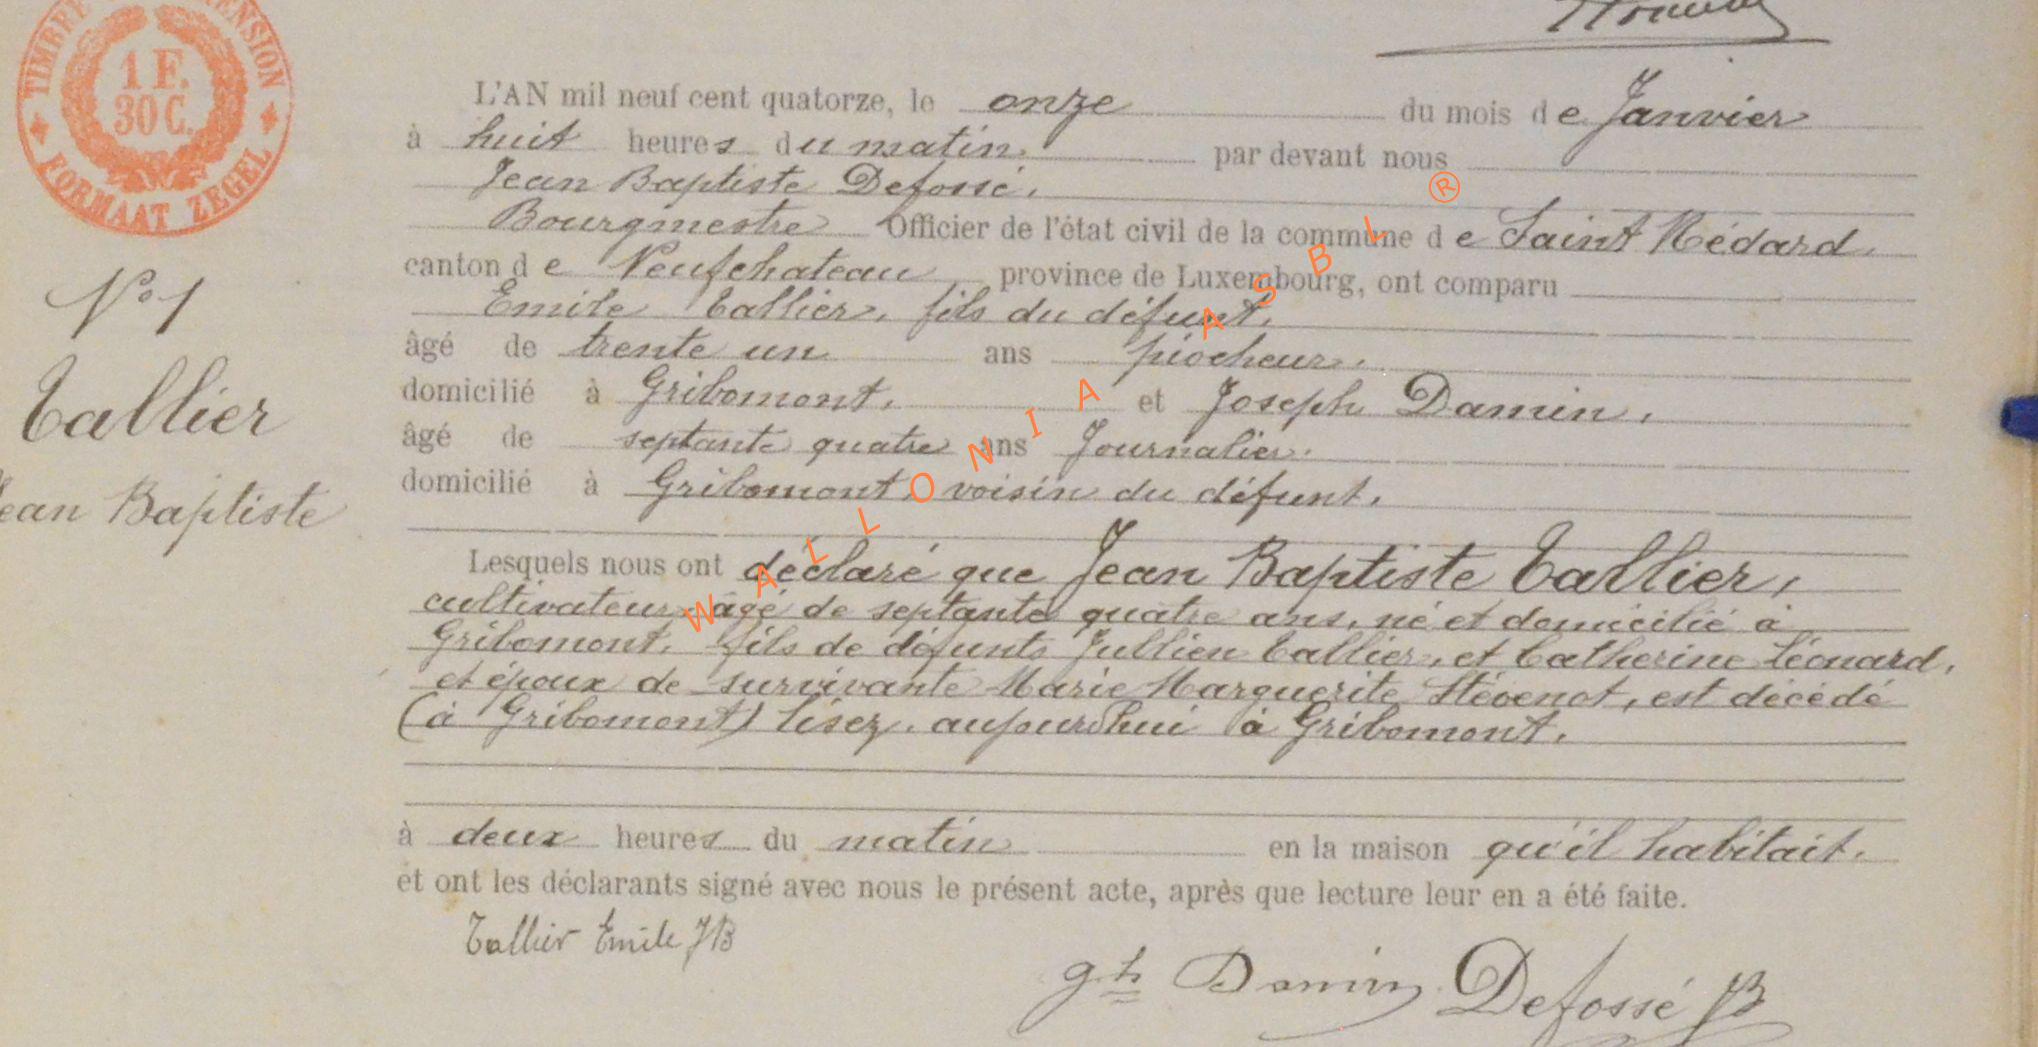 TIMBRE DIMENSION
1 F.
30 C.
FORMAAT ZEGEL
L'AN mil neuf cent quatorze, le onze du mois de Janvier
à huit heures du matin. par devant nous
Jean Baptiste Defossé,
Bourgmestre Officier de l'état civil de la commune de Saint Médard,
canton de Neufchateau province de Luxembourg, ont comparu
Emile Tallier, fils du défunt,
âgé de trente un ans piocheur,
domicilié à Gribomont, et Joseph Damin,
âgé de septante quatre ans Journalier.
domicilié à Gribomont, voisin du défunt.
Lesquels nous ont déclaré que Jean Baptiste Tallier,
cultivateur, âgé de septante quatre ans, né et domicilié à
Gribomont, fils de défunts Jullien Tallier, et Catherine Léonard,
et époux de survivante Marie Marguerite Stévenot, est décédé
(à Gribomont) lisez, aujourdhui à Gribomont.
à deux heures du matin en la maison qu'il habitait.
et ont les déclarants signé avec nous le présent acte, après que lecture leur en a été faite.
Tallier Emile JB
gh Damin Defossé JB
N° 1
Tallier
Jean Baptiste
WALLONIA ASBL ®